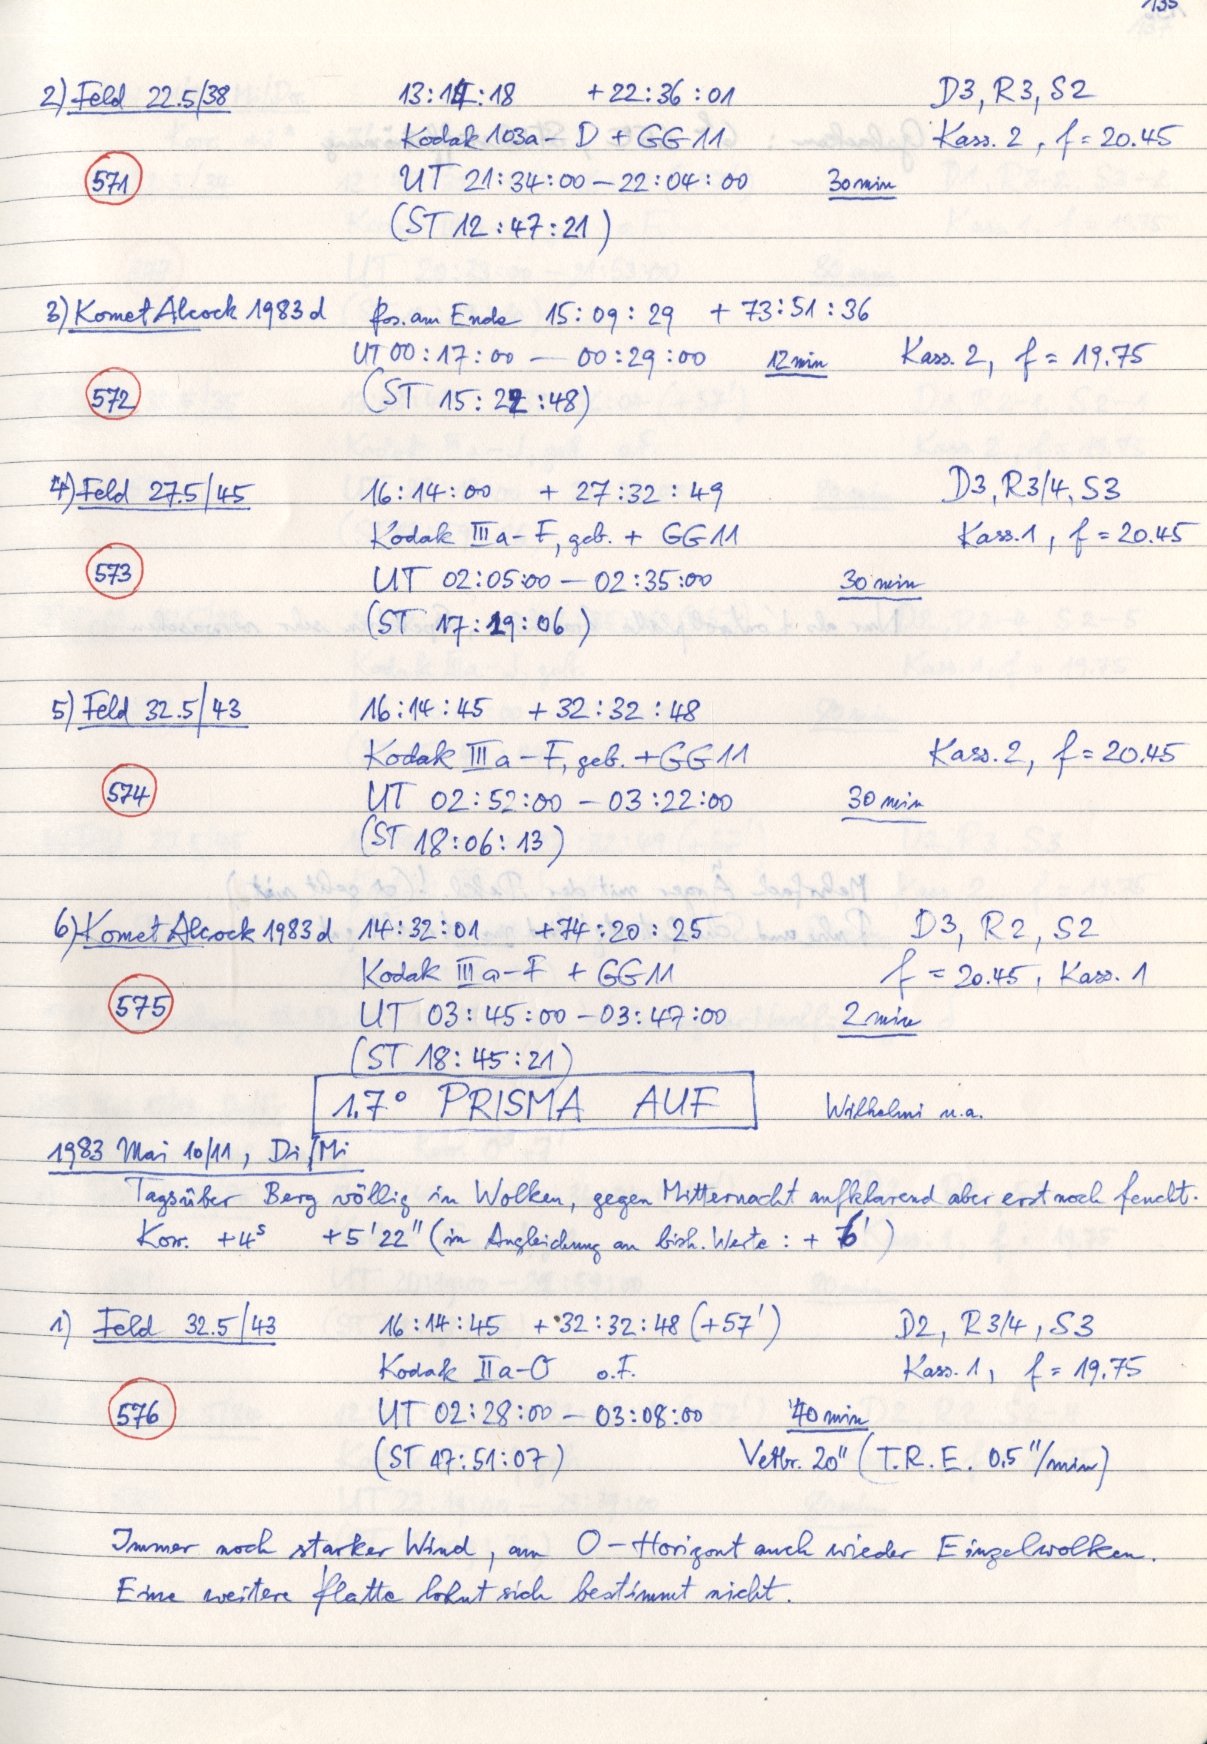 135
2) Feld 22.5/38 13:14:18 +22:36:01 D3, R3, S2
Kodak 103a-D + GG11 Kass. 2, f = 20.45
571 UT 21:34:00 - 22:04:00 30 min
(ST 12:47:21)
3) Komet Alcock 1983 d Pos. am Ende 15:09:29 + 73:51:36
UT 00:17:00 - 00:29:00 12 min Kass. 2, f = 19.75
572 (ST 15:22:48)
4) Feld 27.5/45 16:14:00 + 27:32:49 D3, R3/4, S3
Kodak IIIa-F, geb. + GG11 Kass. 1, f = 20.45
573 UT 02:05:00 - 02:35:00 30 min
(ST 17:19:06)
5) Feld 32.5/43 16:14:45 +32:32:48
Kodak IIIa-F, geb. + GG11 Kass. 2, f = 20.45
574 UT 02:52:00 - 03:22:00 30 min
(ST 18:06:13)
6) Komet Alcock 1983 d 14:32:01 +74:20:25 D3, R2, S2
Kodak IIIa-F + GG11 f = 20.45, Kass. 1
575 UT 03:45:00 - 03:47:00 2 min
(ST 18:45:21)
1.7° PRISMA AUF Wilhelmi u.a.
1983 Mai 10/11, Di/Mi
Tagsüber Berg völlig in Wolken, gegen Mitternacht aufklarend aber erst noch feucht.
Korr. +4ˢ +5'22" (in Angleichung an bish. Werte: + 6')
1) Feld 32.5/43 16:14:45 + 32:32:48 (+57') D2, R3/4, S3
Kodak IIa-O o.F. Kass. 1, f = 19.75
576 UT 02:28:00 - 03:08:00 40 min
(ST 17:51:07) Vetbr. 20" (T.R.E. 0.5"/min)
Immer noch starker Wind, am O-Horizont auch wieder Einzelwolken.
Eine weitere Platte lohnt sich bestimmt nicht.